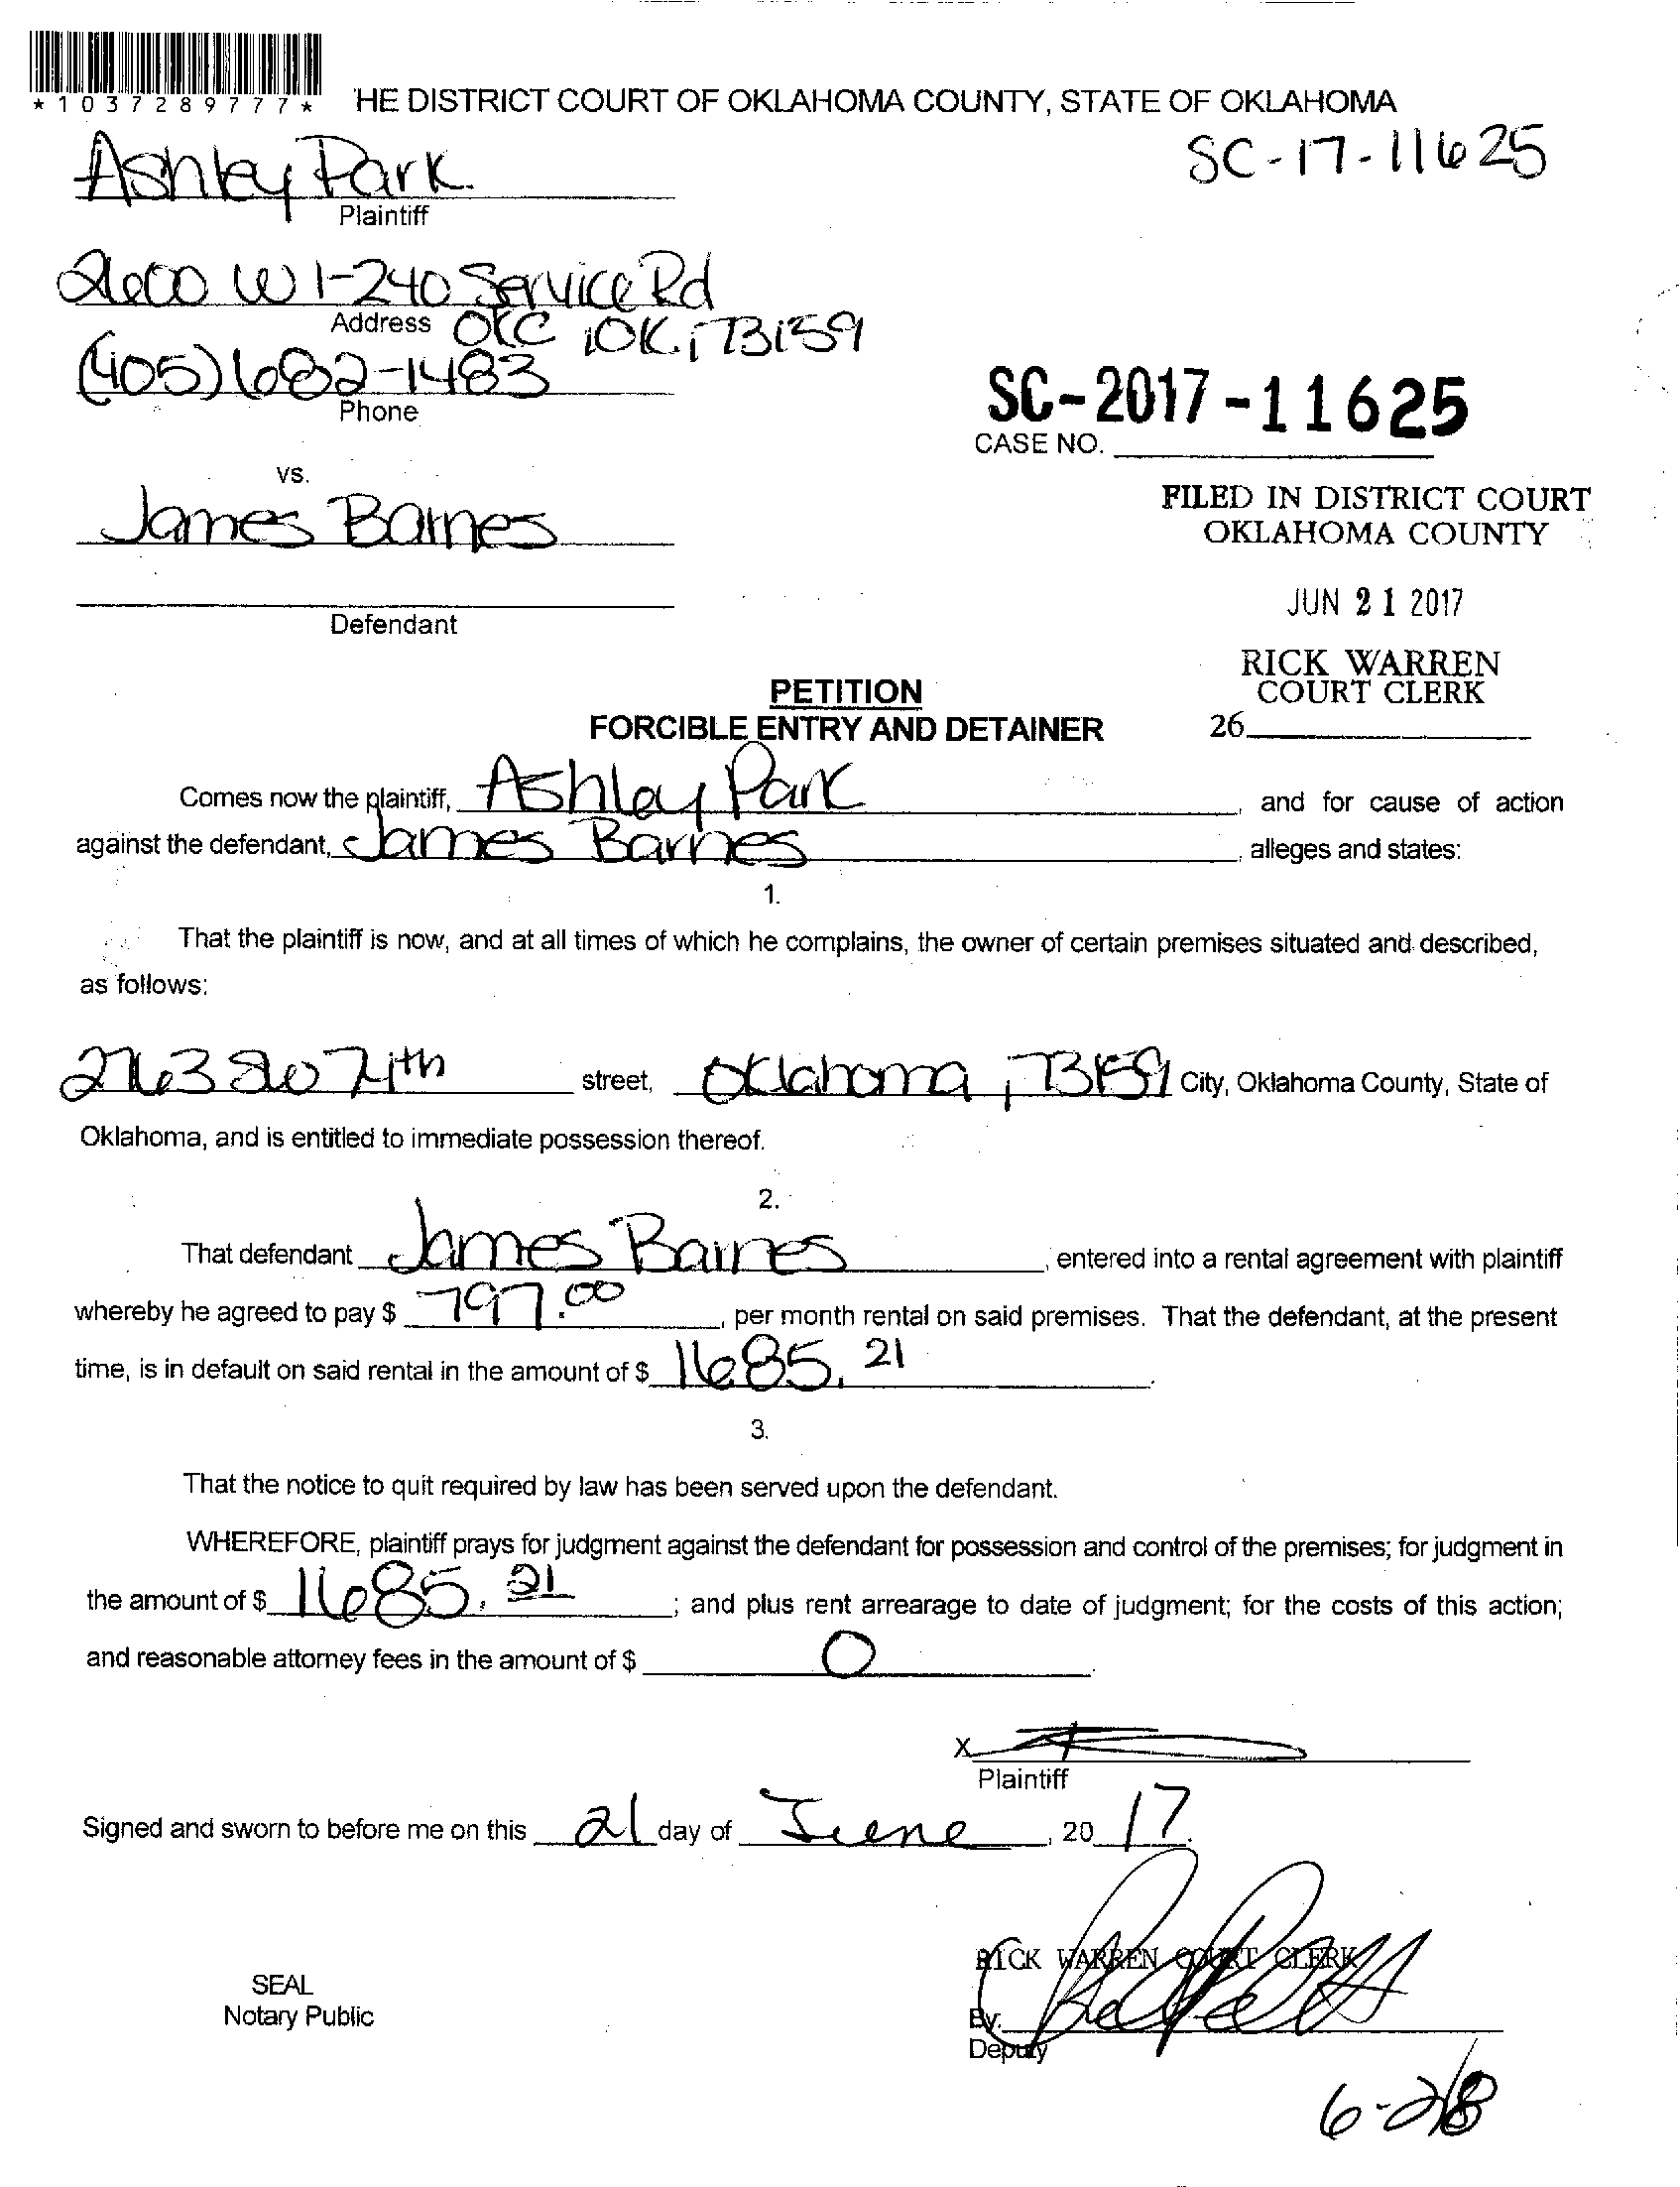 *1037289777*
HE DISTRICT COURT OF OKLAHOMA COUNTY, STATE OF OKLAHOMA
Ashley Park
SC-17-11625
Plaintiff
2600 W I-240 Service Rd
Address OKC, OK, 73159
(405) 682-1483
Phone
SC-2017-11625
CASE NO.
vs.
James Barnes
FILED IN DISTRICT COURT
OKLAHOMA COUNTY
JUN 21 2017
Defendant
RICK WARREN
COURT CLERK
PETITION
FORCIBLE ENTRY AND DETAINER
26
Comes now the plaintiff, Ashley Park, and for cause of action
against the defendant, James Barnes, alleges and states:
1.
That the plaintiff is now, and at all times of which he complains, the owner of certain premises situated and described,
as follows:
2763 street, Oklahoma, 73159 City, Oklahoma County, State of
Oklahoma, and is entitled to immediate possession thereof.
2.
That defendant James Barnes, entered into a rental agreement with plaintiff
whereby he agreed to pay $ 797.00, per month rental on said premises. That the defendant, at the present
time, is in default on said rental in the amount of $ 1685.21.
3.
That the notice to quit required by law has been served upon the defendant.
WHEREFORE, plaintiff prays for judgment against the defendant for possession and control of the premises; for judgment in
the amount of $ 1685.21; and plus rent arrearage to date of judgment; for the costs of this action;
and reasonable attorney fees in the amount of $ 0.
X
Plaintiff
Signed and sworn to before me on this 21 day of June, 20 17.
RICK WARREN COURT CLERK
SEAL
Notary Public
By.
Deputy